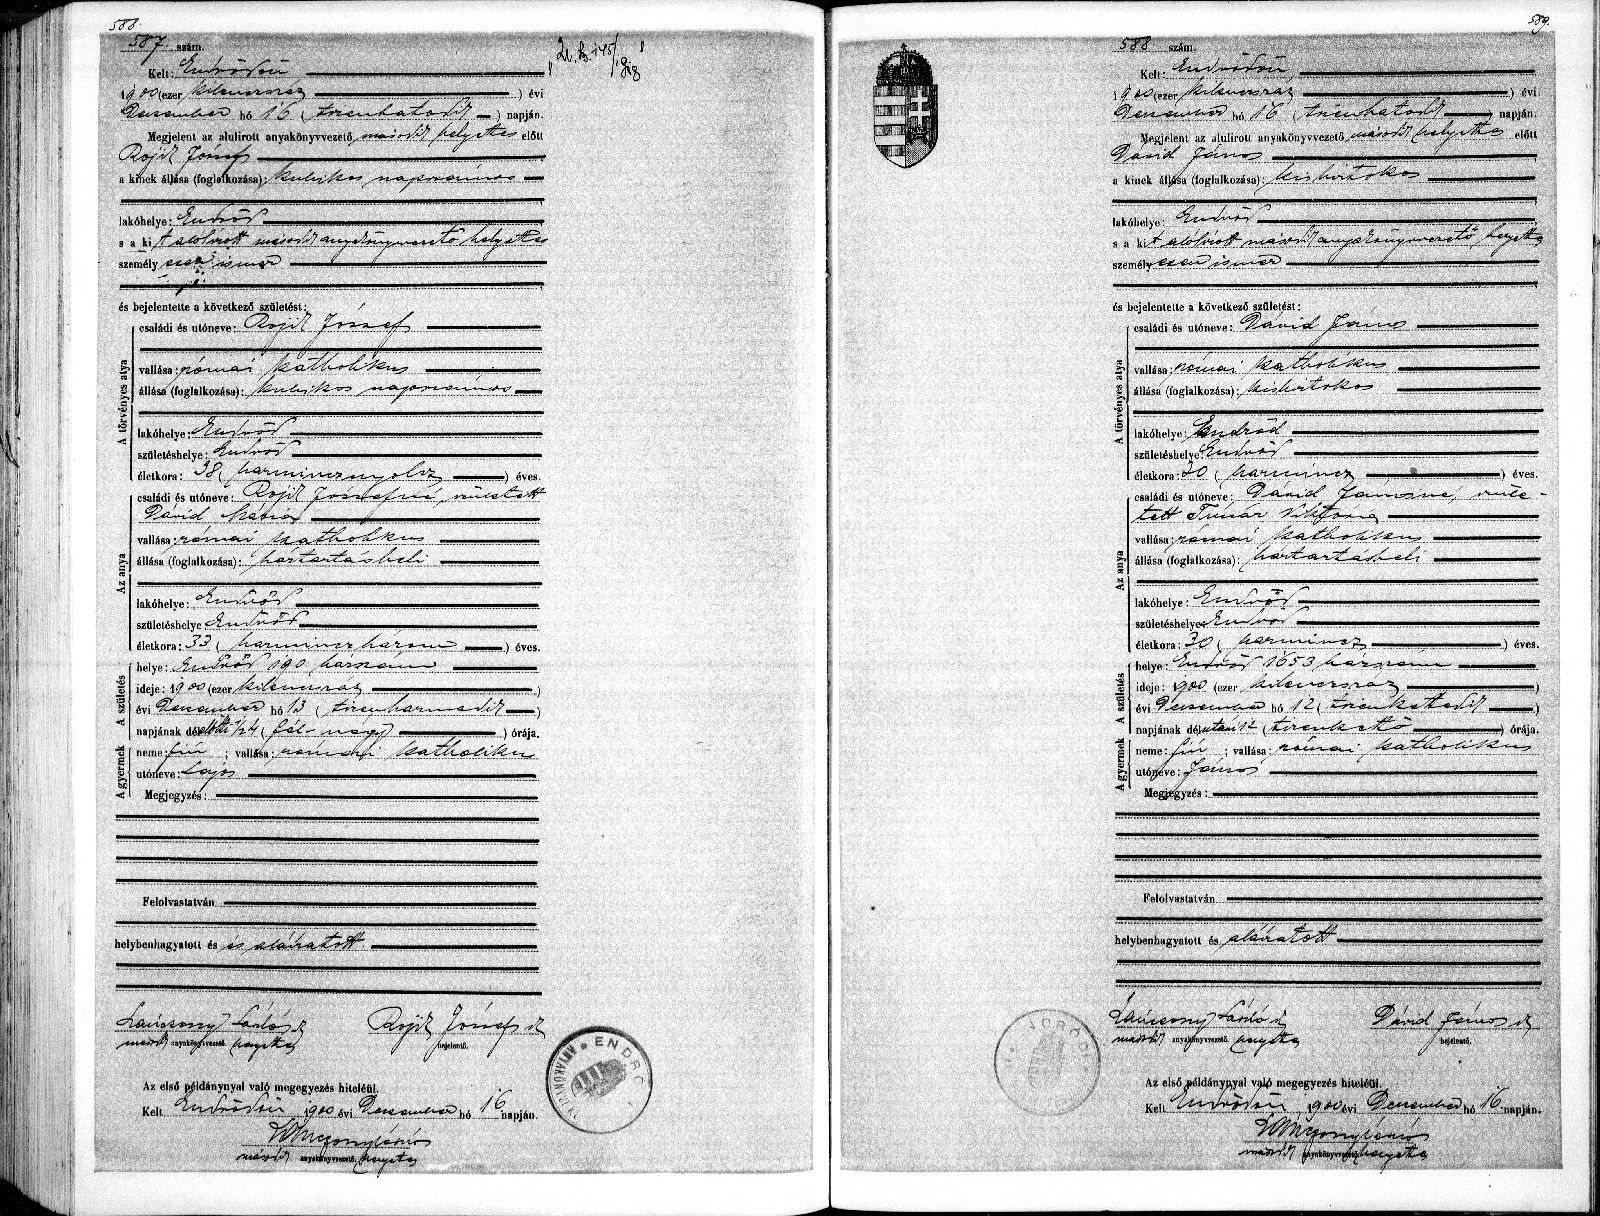 588.
587. szám.
Kelt: Endrődön,
1900 (ezer kilenczszáz) évi
Deczember hó 16 (tizenhatodik) napján.
Megjelent az alulirott anyakönyvvezető második helyettes előtt
Rojik József
a kinek állása (foglalkozása): kubikos napszámos
lakóhelye: Endrőd
s a kit alólirott második anyakönyvvezető helyettes
személyesen ismer
és bejelentette a következő születést:
A törvényes atya
családi és utóneve: Rojik József
vallása: római katholikus
állása (foglalkozása): kubikos napszámos
lakóhelye: Endrőd
születéshelye: Endrőd
életkora: 38 (harmincznyolcz) éves.
Az anya
családi és utóneve: Rojik Józsefné, született
Dávid Mária
vallása: római katholikus
állása (foglalkozása): háztartásbeli
lakóhelye: Endrőd
születéshelye Endrőd
életkora: 33 (harminczhárom) éves.
A születés
helye: Endrőd 190 házszám
ideje: 1900 (ezer kilenczszáz)
évi Deczember hó 13 (tizenharmadik)
napjának délelőtti 1/2 4 (fél négy) órája.
A gyermek
neme: fiú ; vallása: római katholikus
utóneve: Lajos
Megjegyzés:
Felolvastatván
helybenhagyatott és és aláiratott
Rojik József
második anyakönyvvezető helyettes bejelentő.
ENDRŐD
Az első példánynyal való megegyezés hiteléül.
Kelt Endrődön, 1900 évi Deczember hó 16 napján.
második anyakönyvvezető. helyettes
589.
588 szám.
Kelt: Endrődön,
1900 (ezer kilenczszáz) évi
Deczember hó 16 (tizenhatodik) napján.
Megjelent az alulirott anyakönyvvezető, második helyettes előtt
Dávid János
a kinek állása (foglalkozása): kisbirtokos
lakóhelye: Endrőd
s a kit alólirott második anyakönyvvezető helyettes
személyesen ismer
és bejelentette a következő születést:
A törvényes atya
családi és utóneve: Dávid János
vallása: római katholikus
állása (foglalkozása): kisbirtokos
lakóhelye: Endrőd
születéshelye Endrőd
életkora: 30 (harmincz) éves.
Az anya
családi és utóneve: Dávid Jánosné, szüle-
tett Timár Viktória
vallása: római katholikus
állása (foglalkozása): háztartásbeli
lakóhelye: Endrőd
születéshelye Endrőd
életkora: 30 (harmincz) éves.
A születés
helye: Endrőd 1653 házszám
ideje: 1900 (ezer kilenczszáz)
évi Deczember hó 12 (tizenkettedik)
napjának délutáni 12 (tizenkettő) órája.
A gyermek
neme: fiú ; vallása: római katholikus
utóneve: János
Megjegyzés:
Felolvastatván
helybenhagyatott és aláiratott
Dávid János
második anyakönyvvezető. helyettes bejelentő.
Az első példánynyal való megegyezés hiteléül.
Kelt Endrődön, 1900 évi Deczember hó 16 napján.
második anyakönyvvezető. helyettes